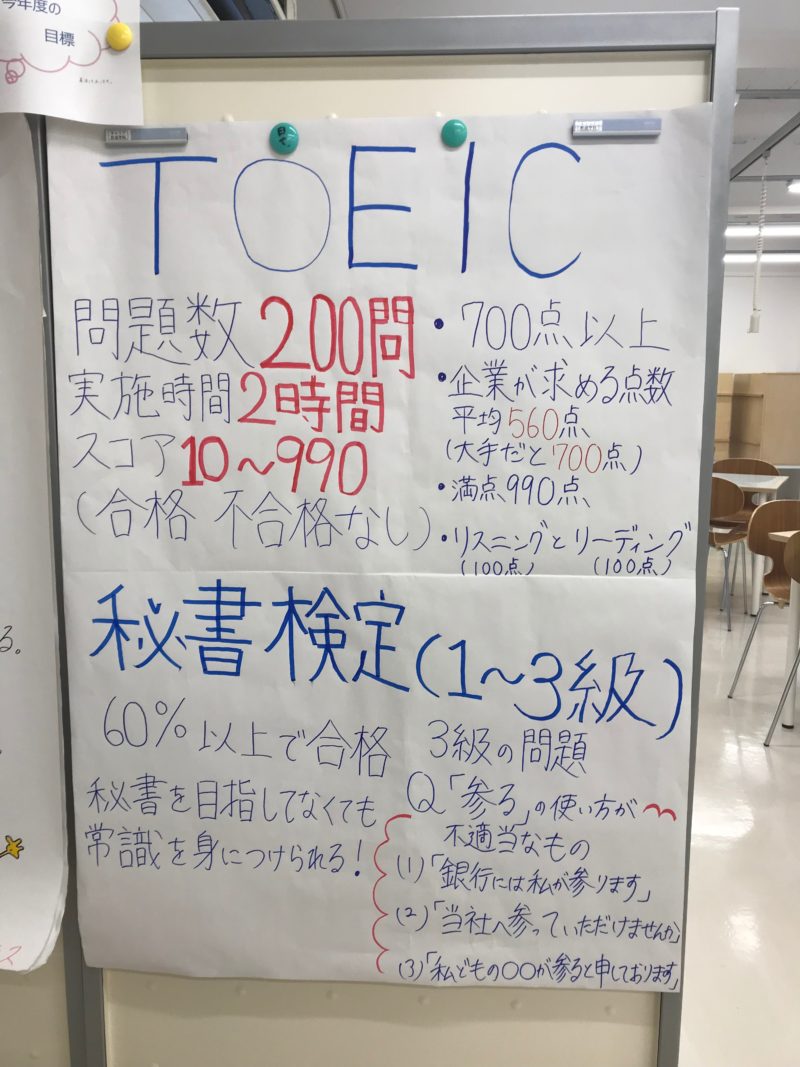 今年度の
目標
TOEIC
問題数 200問
実施時間 2時間
スコア 10〜990
(合格 不合格なし)
・700点以上
・企業が求める点数
平均560点
(大手だと700点)
・満点990点
・リスニングとリーディング
(100点) (100点)
秘書検定(1〜3級)
60%以上で合格
秘書を目指してなくても
常識を身につけられる!
3級の問題
Q「参る」の使い方が
不適当なもの
(1)「銀行には私が参ります」
(2)「当社へ参っていただけませんか」
(3)「私どもの〇〇が参ると申しております」
る。